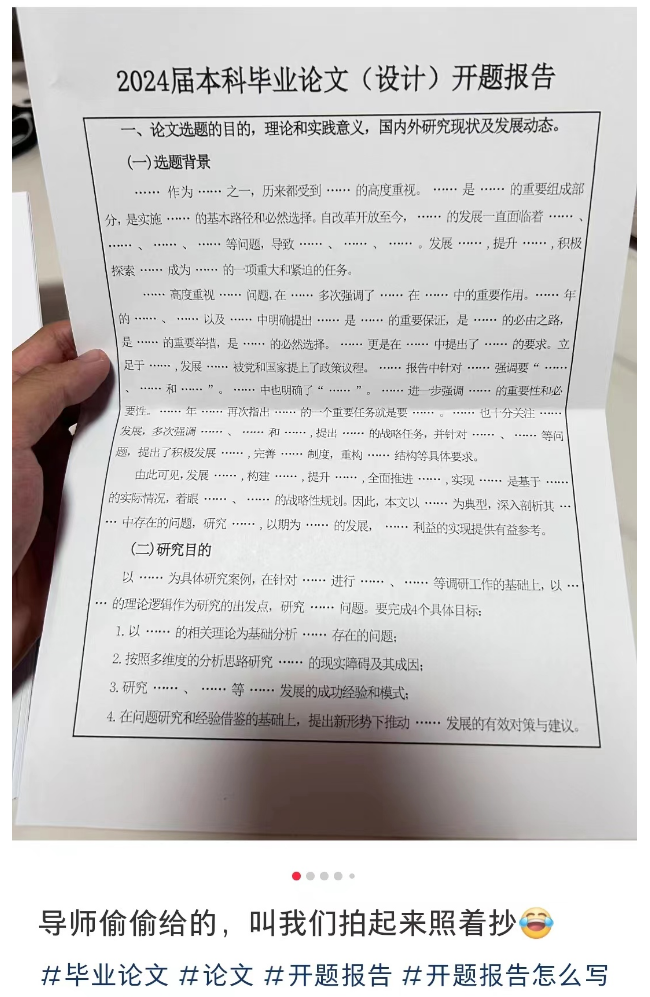 2024届本科毕业论文（设计）开题报告
一、论文选题的目的，理论和实践意义，国内外研究现状及发展动态。
(一)选题背景
…… 作为 …… 之一，历来都受到 …… 的高度重视。 …… 是 …… 的重要组成部
分，是实施 …… 的基本路径和必然选择。自改革开放至今， …… 的发展一直面临着 …… 、
…… 、 …… 、 …… 等问题，导致 …… 、 …… 、 …… 。发展 …… ,提升 …… ,积极
探索 …… 成为 …… 的一项重大和紧迫的任务。
…… 高度重视 …… 问题,在 …… 多次强调了 …… 在 …… 中的重要作用。 …… 年
的 …… 、 …… 以及 …… 中明确提出 …… 是 …… 的重要保证，是 …… 的必由之路，
是 …… 的重要举措，是 …… 的必然选择。 …… 更是在 …… 中提出了 …… 的要求。立
足于 …… ,发展 …… 被党和国家提上了政策议程。 …… 报告中针对 …… 强调要“ ……
、 …… 和 …… ”。 …… 中也明确了“ …… ”。 …… 进一步强调 …… 的重要性和必
要性。 …… 年 …… 再次指出 …… 的一个重要任务就是要 …… 。 …… 也十分关注 ……
发展，多次强调 …… 、 …… 和 …… ,提出 …… 的战略任务，并针对 …… 、 …… 等问
题，提出了积极发展 …… ,完善 …… 制度，重构 …… 结构等具体要求。
由此可见,发展 …… ,构建 …… ,提升 …… ,全面推进 …… ,实现 …… 是基于 ……
的实际情况，着眼 …… 、 …… 的战略性规划。因此，本文以 …… 为典型，深入剖析其 …
… 中存在的问题，研究 …… ,以期为 …… 的发展， …… 利益的实现提供有益参考。
(二)研究目的
以 …… 为具体研究案例，在针对 …… 进行 …… 、 …… 等调研工作的基础上，以 …
… 的理论逻辑作为研究的出发点，研究 …… 问题。要完成4个具体目标;
1. 以 …… 的相关理论为基础分析 …… 存在的问题;
2. 按照多维度的分析思路研究 …… 的现实障碍及其成因;
3. 研究 …… 、 …… 等 …… 发展的成功经验和模式;
4. 在问题研究和经验借鉴的基础上，提出新形势下推动 …… 发展的有效对策与建议。
导师偷偷给的，叫我们拍起来照着抄😂
#毕业论文 #论文 #开题报告 #开题报告怎么写